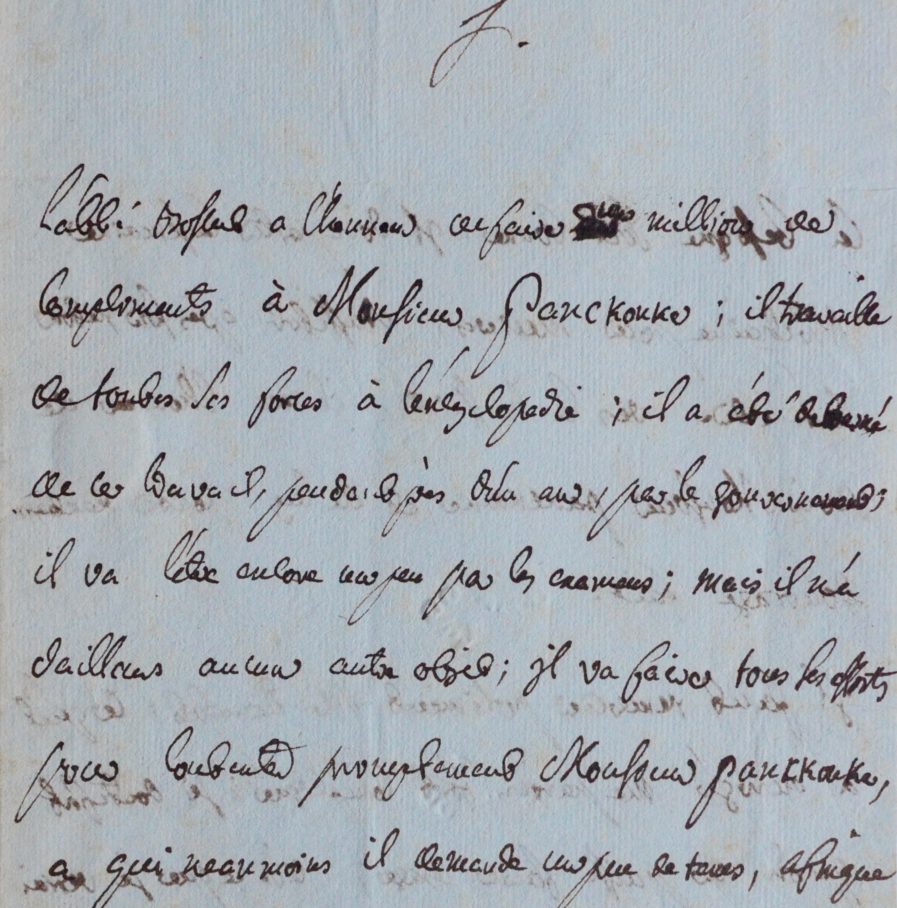 f.
L'abbé Bossut a l'honneur de faire un million de
compliments à Monsieur Panckouke ; il travaille
de toutes ses forces à l'encyclopedie ; il a été détourné
de ce travail, pendant près d'un an, par le gouvernement ;
il va l'être encore un peu par les examens ; mais il n'a
d'ailleurs aucun autre objet ; il va faire tous ses efforts
pour contenter promptement Monsieur Panckouke,
a qui neanmoins il demande un peu de tems, afin que